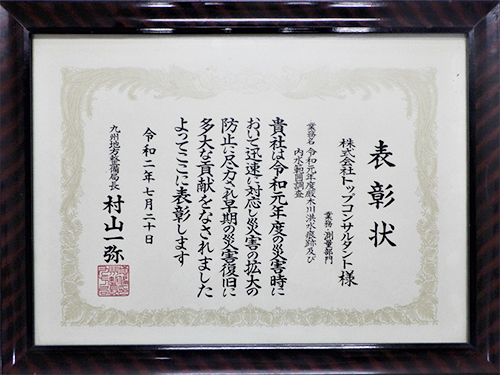 表彰状
業務・測量部門
株式会社トップコンサルタント 様
業務名 令和元年度厳木川洪水痕跡及び
内水範囲調査
貴社は令和元年度の災害時に
おいて迅速に対応し災害の拡大の
防止に尽力され早期の災害復旧に
多大な貢献をなされました
よってここに表彰します
令和二年七月二十日
九州地方整備局長 村山一弥